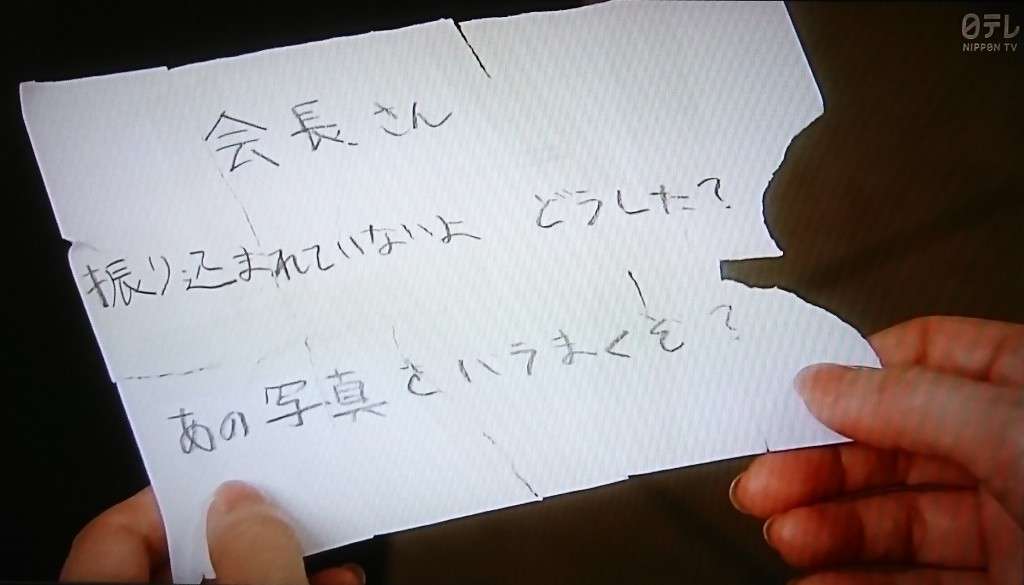 日テレ
NIPPON TV
会長さん
振り込まれていないよ どうした?
あの写真をバラまくぞ?